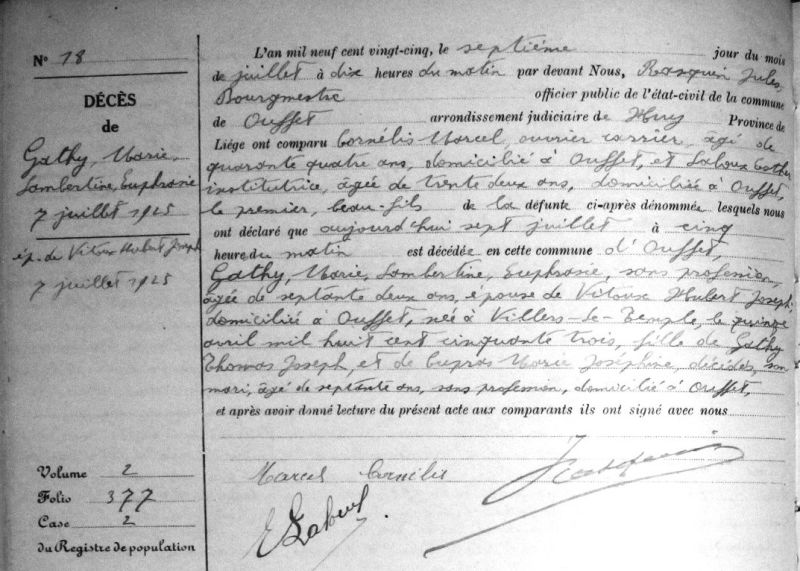 N° 18
DÉCÈS
de
Gathy, Marie
Lambertine, Euphrasie
7 juillet 1925
ép. de Vitoux Hubert Joseph
7 juillet 1925
Volume 2
Folio 377
Case 2
du Registre de population
L'an mil neuf cent vingt-cinq, le septième jour du mois
de juillet à dix heures du matin par devant Nous, Rasquin Jules,
Bourgmestre officier public de l'état-civil de la commune
de Ouffet arrondissement judiciaire de Huy Province de
Liége ont comparu Cornélis Marcel, ouvrier carrier, âgé de
quarante quatre ans, domicilié à Ouffet, et Laloux
institutrice, âgée de trente deux ans, domiciliée à Ouffet,
le premier, beau-fils de la défunte ci-après dénommée lesquels nous
ont déclaré que aujourd'hui sept juillet à cinq
heure du matin est décédée en cette commune d'Ouffet,
Gathy, Marie, Lambertine, Euphrasie, sans profession,
âgée de septante deux ans, épouse de Vitoux Hubert Joseph,
domiciliée à Ouffet, née à Villers-le-Temple, le quinze
avril mil huit cent cinquante trois, fille de Gathy
Thomas Joseph, et de Marie Joséphine, décédés, son
mari, âgé de septante ans, sans profession, domicilié à Ouffet,
et après avoir donné lecture du présent acte aux comparants ils ont signé avec nous
Marcel Cornélis
Laloux